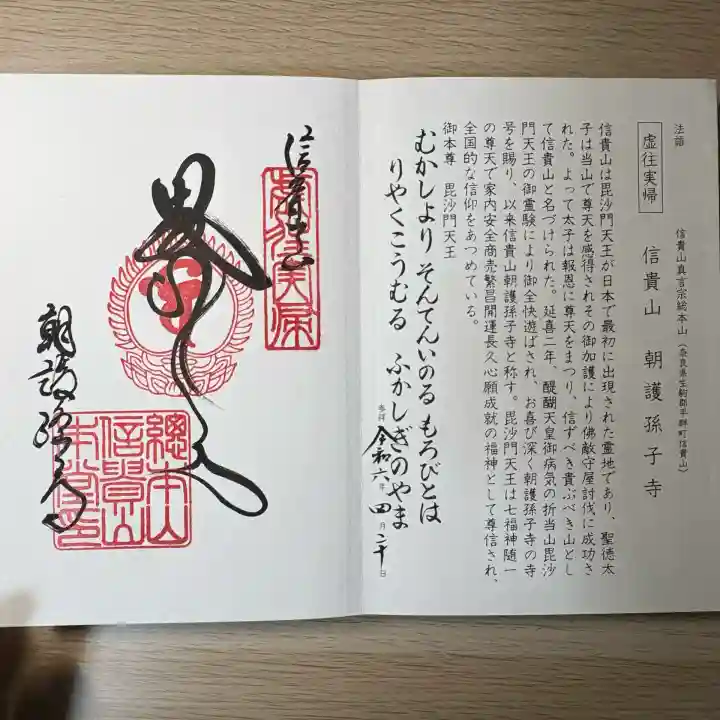 法語
虚往実帰
信貴山真言宗総本山（奈良県生駒郡平群町信貴山）
信貴山 朝護孫子寺
信貴山は毘沙門天王が日本で最初に出現された霊地であり、聖徳太
子は当山で尊天を感得されその御加護により佛敵守屋討伐に成功さ
れた。よって太子は報恩に尊天をまつり、信ずべき貴ぶべき山とし
て信貴山と名づけられた。延喜二年、醍醐天皇御病気の折当山毘沙
門天王の御霊験により御全快遊ばされ、お喜び深く朝護孫子寺の寺
号を賜り、以来信貴山朝護孫子寺と称す。毘沙門天王は七福神随一
の尊天で家内安全商売繁昌開運長久心願成就の福神として尊信され、
全国的な信仰をあつめている。
御本尊 毘沙門天王
むかしより そんてんいのる もろびとは
りやくこうむる ふかしぎのやま
参拝 令和六年 四月二十日
信貴山
虚往実帰
朝護孫子寺
總本山
信貴山
本堂印